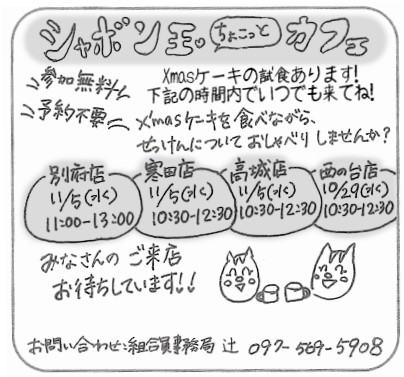 シャボン玉。ちょこっとカフェ
参加無料
予約不要
Xmasケーキの試食あります!
下記の時間内でいつでも来てね!
X'masケーキを食べながら、
せっけんについておしゃべりしませんか?
別府店
11/5(水)
11:00-13:00
寒田店
11/5(水)
10:30-12:30
高城店
11/5(水)
10:30-12:30
西の台店
10/29(水)
10:30-12:30
みなさんのご来店
お待ちしています!!
お問い合わせ:組合員事務局 辻 097-569-5908